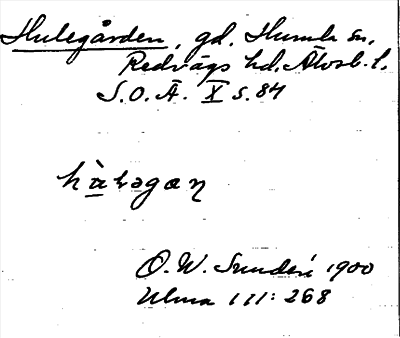 Hulegården, gd. Humla sn,
Redvägs hd. Älvsb. l.
S.O.Ä. X s. 84
O. W. 1900
Ulma 111:268